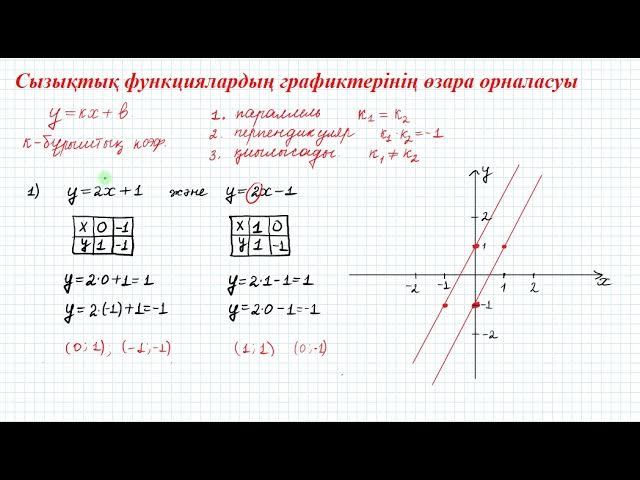 Сызықтық функциялардың графиктерінің өзара орналасуы
y = кx + в
к-бұрыштық коэф.
1. параллель к₁ = к₂
2. перпендикуляр к₁·к₂ = -1
3. қиылысады. к₁ ≠ к₂
1) y = 2x + 1 және y = 2x - 1
x 0 -1
y 1 -1
x 1 0
y 1 -1
y = 2·0 + 1 = 1
y = 2·(-1) + 1 = -1
(0; 1), (-1; -1)
y = 2·1 - 1 = 1
y = 2·0 - 1 = -1
(1; 1) (0; -1)
y
2
1
-2 -1 1 2 x
-1
-2